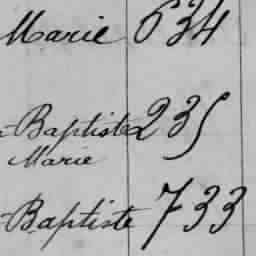 Marie 634
-Baptiste 235
Marie
-Baptiste 733